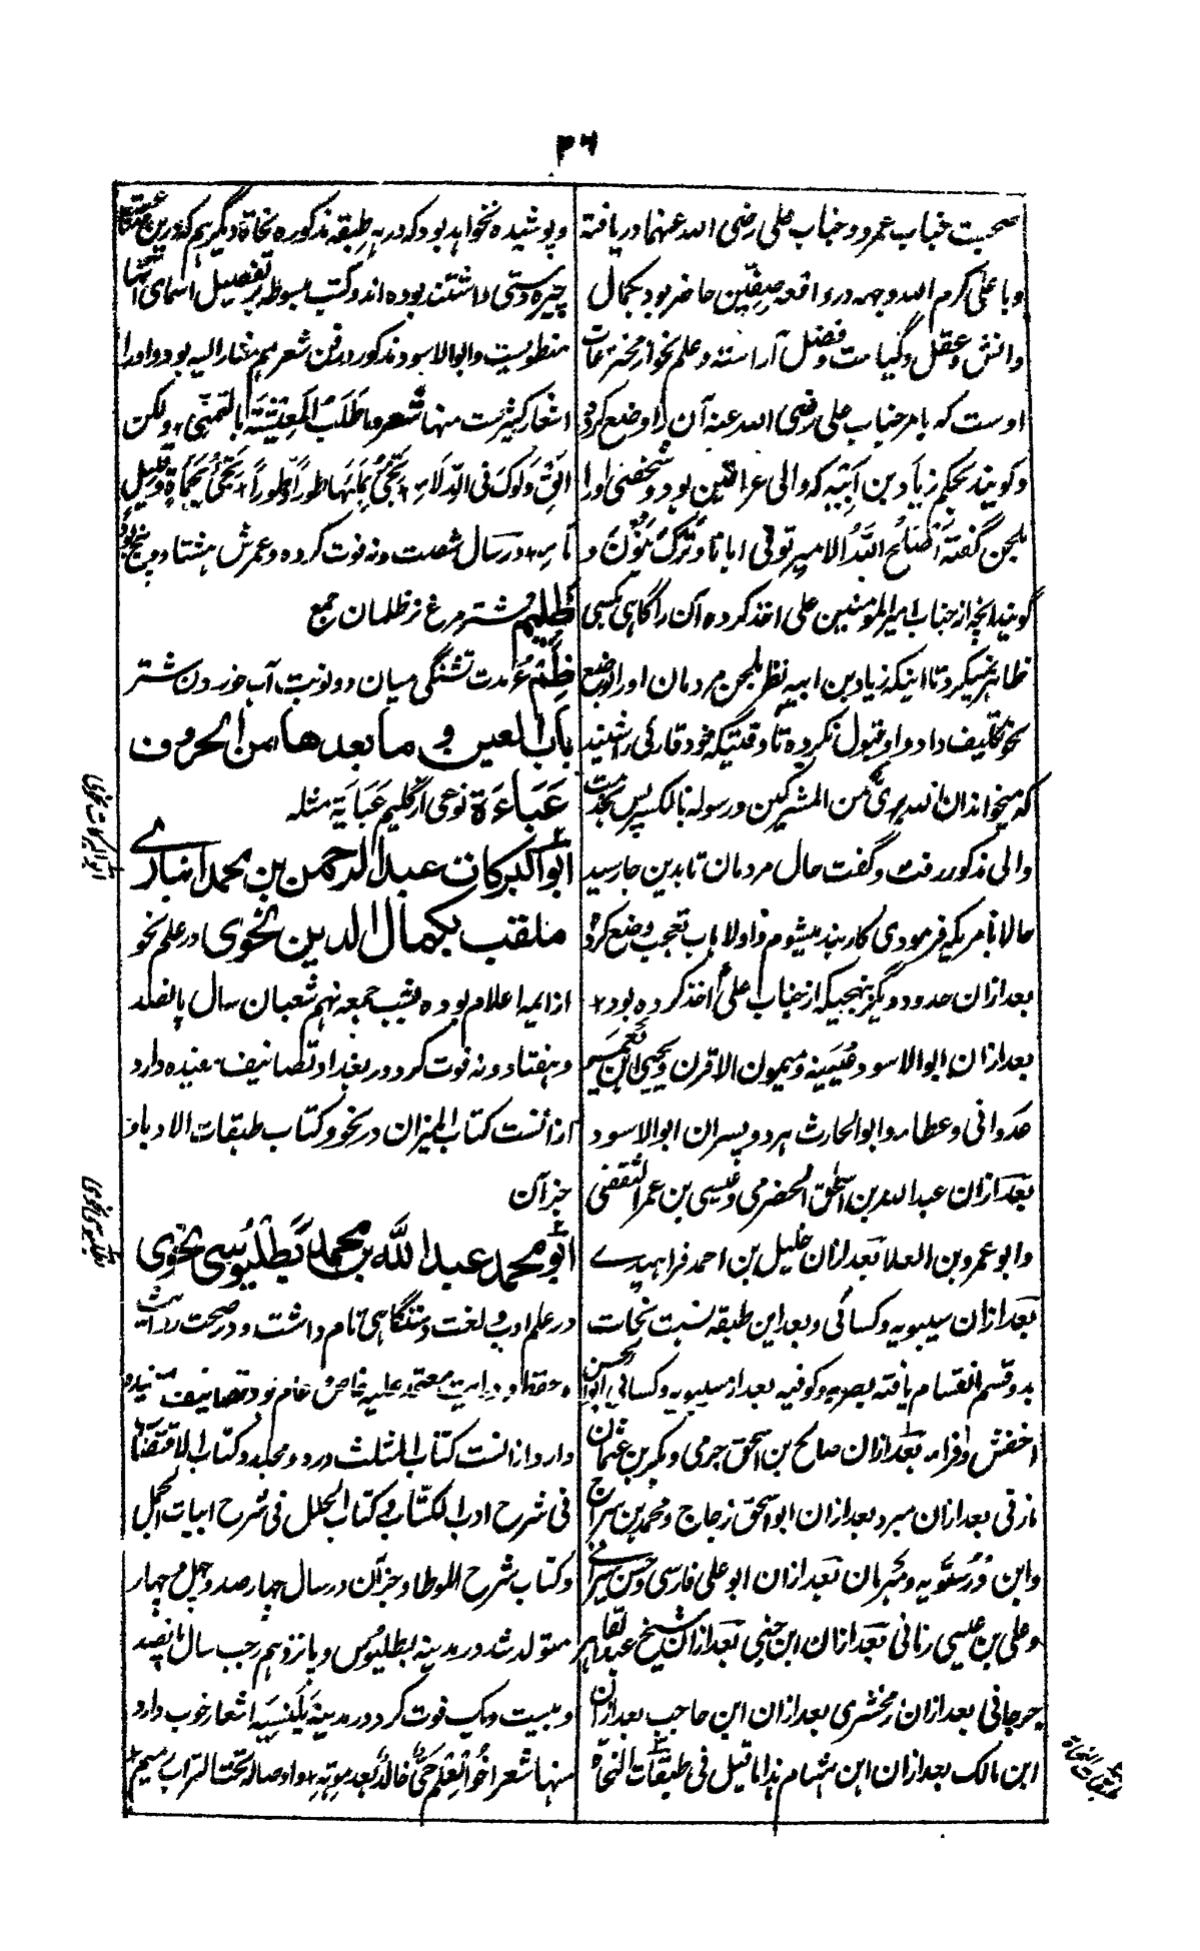 ۳۶
صحبت جناب عمرو و جناب علی رضی الله عنهما دریافته
و با علی کرم الله وجهه در واقعه صفّین حاضر بود بکمال
دانش و عقل و کیاست و فضل آراسته و علم نحو از مخترعات
اوست که بامر جناب علی رضی الله عنه آن را وضع کرد
و گویند بحکم زیاد بن ابیه که والی عراقین بود و شخصی اورا
بلحن گفته اصلح الله الامیر توفی ابانا و ترک بنون و
گویند انچه از جناب امیرالمومنین علی اخذ کرده آن را گاهی بکسی
ظاهر نمیکرد تا اینکه زیاد بن ابیه نظر بلحن مردمان اورا بوضع
نحو تکلیف داد و او قبول نکرده تا وقتیکه خود قارئی را شنید
که میخواند ان الله بریٌ من المشرکین و رسوله بالکسر پس بخدمت
والی مذکور رفت و گفت حال مردمان تا بدین جا رسید
حالا بامریکه فرمودی کاربند میشوم و اولا باب تعجب وضع کرد
بعد ازان حدود دیگر بنهجیکه از جناب علی اخذ کرده بود
بعد ازان ابوالاسود عیینه و میمون الاقرن و یحیی ابن یعمر
عدوانی و عطاء و ابوالحارث هر دو پسران ابوالاسود
بعد ازان عبدالله بن اسحق الحضرمی و عیسی بن عمر الثقفی
و ابو عمرو بن العلا بعد ازان خلیل بن احمد فراهیدے
بعد ازان سیبویه و کسائی و بعد این طبقه نسبت نحات
بدو قسم انقسام یافته بصریه و کوفیه بعد از سیبویه و کسائی ابوالحسن
اخفش و فراء بعد ازان صالح بن اسحق جرمی و بکر بن عثمان
مازنی بعد ازان مبرد بعد ازان ابو اسحق زجاج و محمد بن سراج
و ابن درستویه و مبرمان بعد ازان ابو علی فارسی و حسن سیرافی
و علی بن عیسی رمانی بعد ازان ابن جنی بعد ازان شیخ عبدالقاهر
جرجانی بعد ازان زمخشری بعد ازان ابن حاجب بعد ازان
ابن مالک بعد ازان ابن هشام هذا ما قیل فی طبقات النحاة
طبقات النحاة
و پوشیده نخواهد بود که در هر طبقه مذکوره نحاة دیگر هم که درین علم
چیره دستی داشتند بوده اند و کتب مبسوطه بر تفصیل اسمای آنها
منطویست و ابوالاسود مذکور در فن شعر هم مشار الیه بود و اورا
اشعار کثیرست منها شعر و ما طلب المعیشة بالتمنی ولکن
الق دلوک فی الدلاء تجئ بملئها طوراً و طوراً تجئ بحماة و قلیل
ماء در سال شصت و نه فوت کرده و عمرش هشتاد و پنج بود
ظلیم شتر مرغ نر ظلمان جمع
ظمء مدت تشنگی میان دو نوبت آب خوردن شتر
باب العین و ما بعدها من الحروف
عَبَاءَة نوعی از گلیم عَبَایَة مثله
ابو البرکات عبد الرحمن بن محمد انبارے
ملقب بکمال الدین نحوی در علم نحو
از ایمه اعلام بوده بشب جمعه نهم شعبان سال پانصد
و هفتاد و نه فوت کرد در بغداد تصانیف مفیده دارد
ازانست کتاب المیزان در نحو و کتاب طبقات الادباء
جز آن
ابو محمد عبد الله بن محمد بَطَلْیُوسی نحوی
در علم ادب و لغت دستگاهی تام داشت و در صحت روایت
و حفظ و درایت معتمد علیه خاص و عام بود تصانیف مفیده
دارد ازانست کتاب المثلث در دو مجلد و کتاب الاقتضاب
فی شرح ادب الکتاب و کتاب الحلل فی شرح ابیات الجمل
و کتاب شرح الموطا و جز آن در سال چهار صد و چهل و چهار
متولد شد در مدینه بطلیوس و پانزدهم رجب سال پانصد
و بیست و یک فوت کرد در مدینه بَلَنسیَه اشعار خوب دارد
منها شعر اخو العلم حیٌّ خالدٌ بعد موته و اوصاله تحت التراب رمیم
ابوالبرکات نحوی
بطلیوسی نحوی